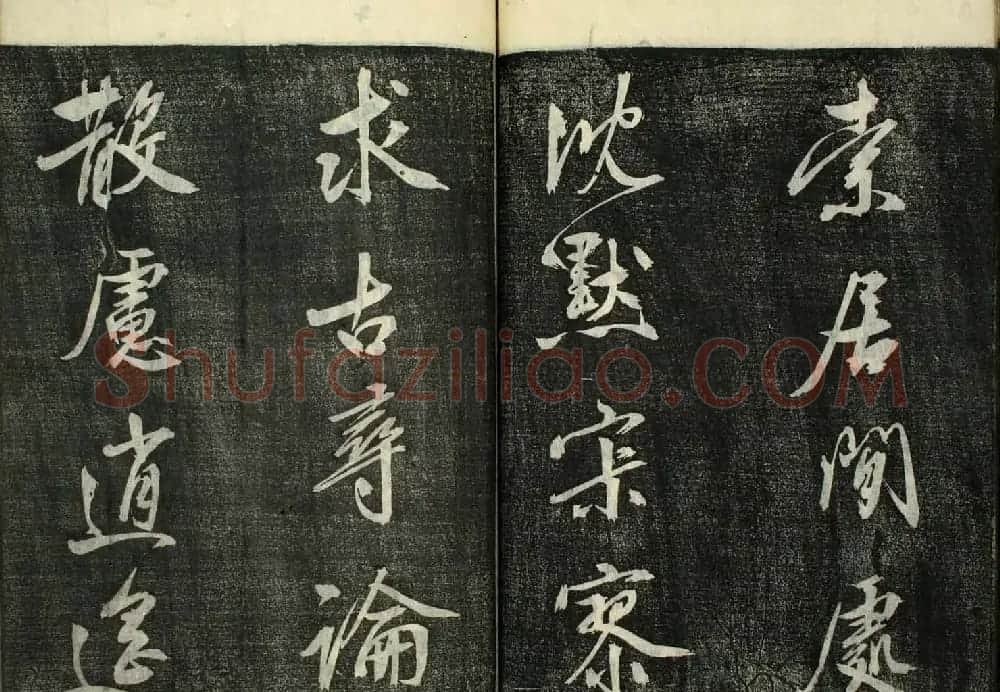 索居閒處
沈默寂寥
求古尋論
散慮逍遥
Shufaziliao.COM